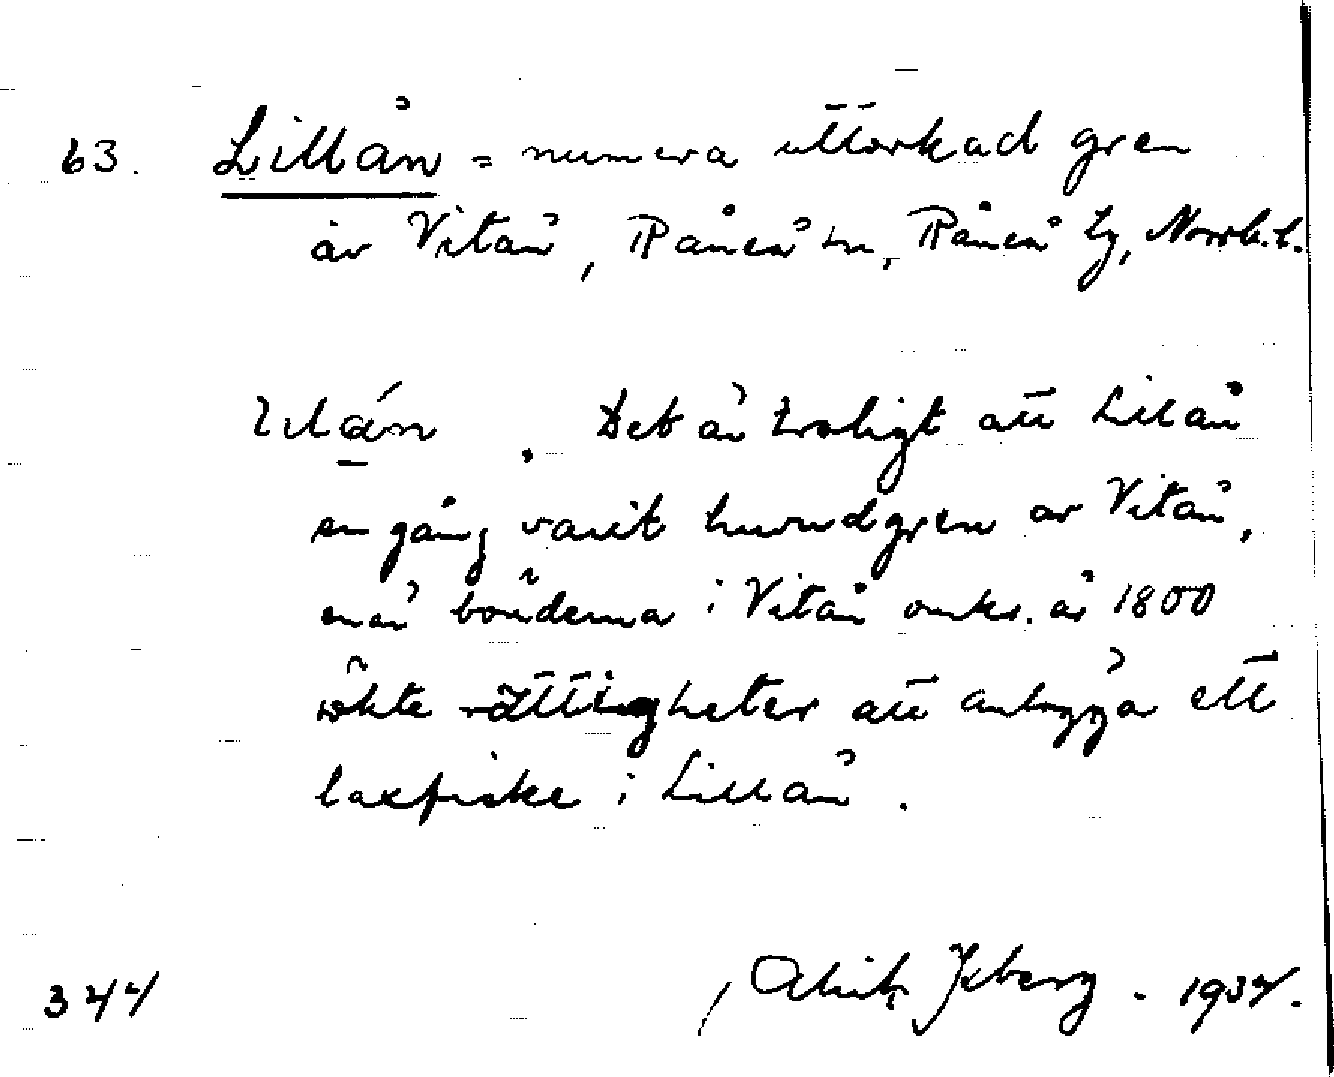 63. Lillån = numera uttorkad gren
av Vitån, Råneå sn, Råneå tg, Norrb. l.
Det är troligt att Lillån
en gång varit huvudgren av Vitån,
bönderna i Vitån omkr. år 1800
sökte rättigheter att anlägga ett
laxfiske i Lillån.
344 Isberg. 1934.